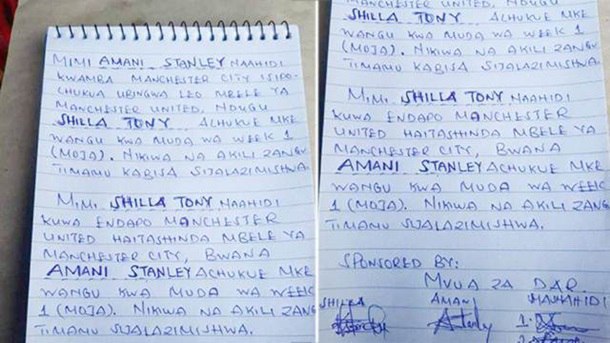 MIMI AMANI STANLEY NAAHIDI
KWAMBA MANCHESTER CITY ISIPO-
CHUKUA UBINGWA LEO MBELE YA
MANCHESTER UNITED. NDUGU
SHILLA TONY ACHUKUE MKE
WANGU KWA MUDA WA WEEK 1
(MOJA). NIKIWA NA AKILI ZANGU
TIMAMU KABISA SIJALAZIMISHWA.
MIMI SHILLA TONY NAAHIDI
KUWA ENDAPO MANCHESTER
UNITED HAITASHINDA MBELE YA
MANCHESTER CITY, BWANA
AMANI STANLEY ACHUKUE MKE
WANGU KWA MUDA WA WEEK
1 (MOJA). NIKIWA NA AKILI ZANG
TIMAMU SIJALAZIMISHWA.
MANCHESTER UNITED. NDUGU
SHILLA TONY ACHUKUE MKE
WANGU KWA MUDA WA WEEK 1
(MOJA). NIKIWA NA AKILI ZANGU
TIMAMU KABISA SIJALAZIMISHWA.
MIMI SHILLA TONY NAAHIDI
KUWA ENDAPO MANCHESTER
UNITED HAITASHINDA MBELE YA
MANCHESTER CITY, BWANA
AMANI STANLEY ACHUKUE MKE
WANGU KWA MUDA WA WEEK
1 (MOJA). NIKIWA NA AKILI ZANG
TIMAMU SIJALAZIMISHWA.
SPONSORED BY:
MVUA ZA DAR.
SHILLA AMANI MASHAHIDI
1.
2.